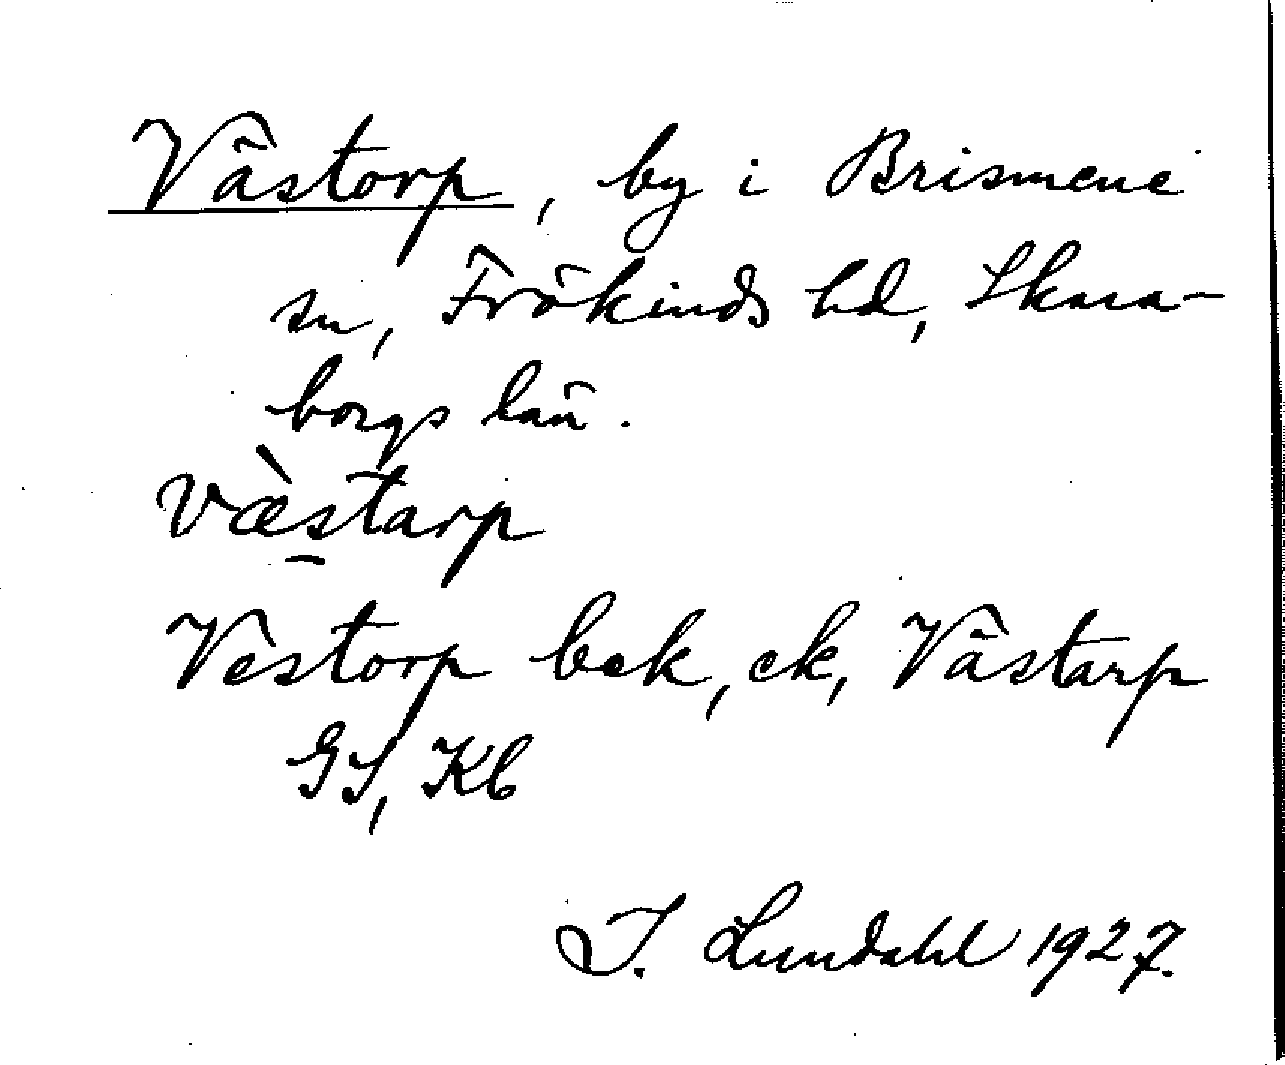 Västorp, by i Brismene
sn, Frökinds hd, Skara-
borgs län.
væ̀s̠tarp
Vestorp bek, ek, Västarp
GS, Kb
I. Lundahl 1927.